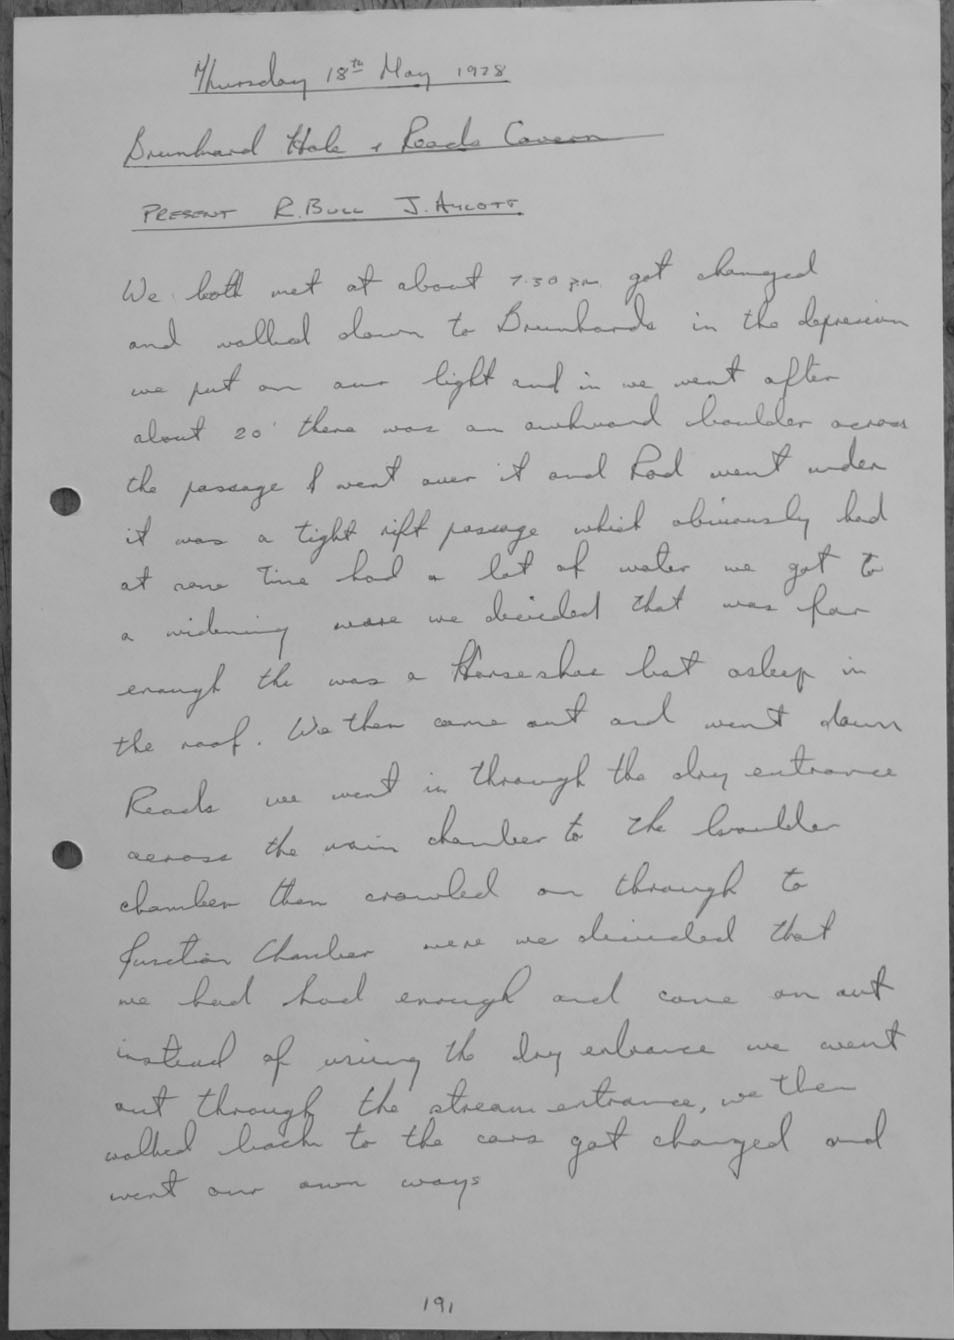 Thursday 18th May 1978
Brunhard Hole + Reads Cavern
PRESENT R. BULL J. AYLOTT
We both met at about 7.30 p.m. got changed
and walked down to Brunhards in the depression
we put on our light and in we went after
about 20' there was an awkward boulder across
the passage I went over it and Rod went under
it was a tight rift passage which obviously had
at some time had a lot of water we got to
a widening were we decided that was far
enough the was a Horseshoe bat asleep in
the roof. We then came out and went down
Reads we went in through the dry entrance
across the main chamber to the boulder
chamber then crawled on through to
Junction Chamber were we decided that
we had had enough and came on out
instead of using the dry entrance we went
out through the stream entrance, we then
walked back to the cars got changed and
went our own ways
191